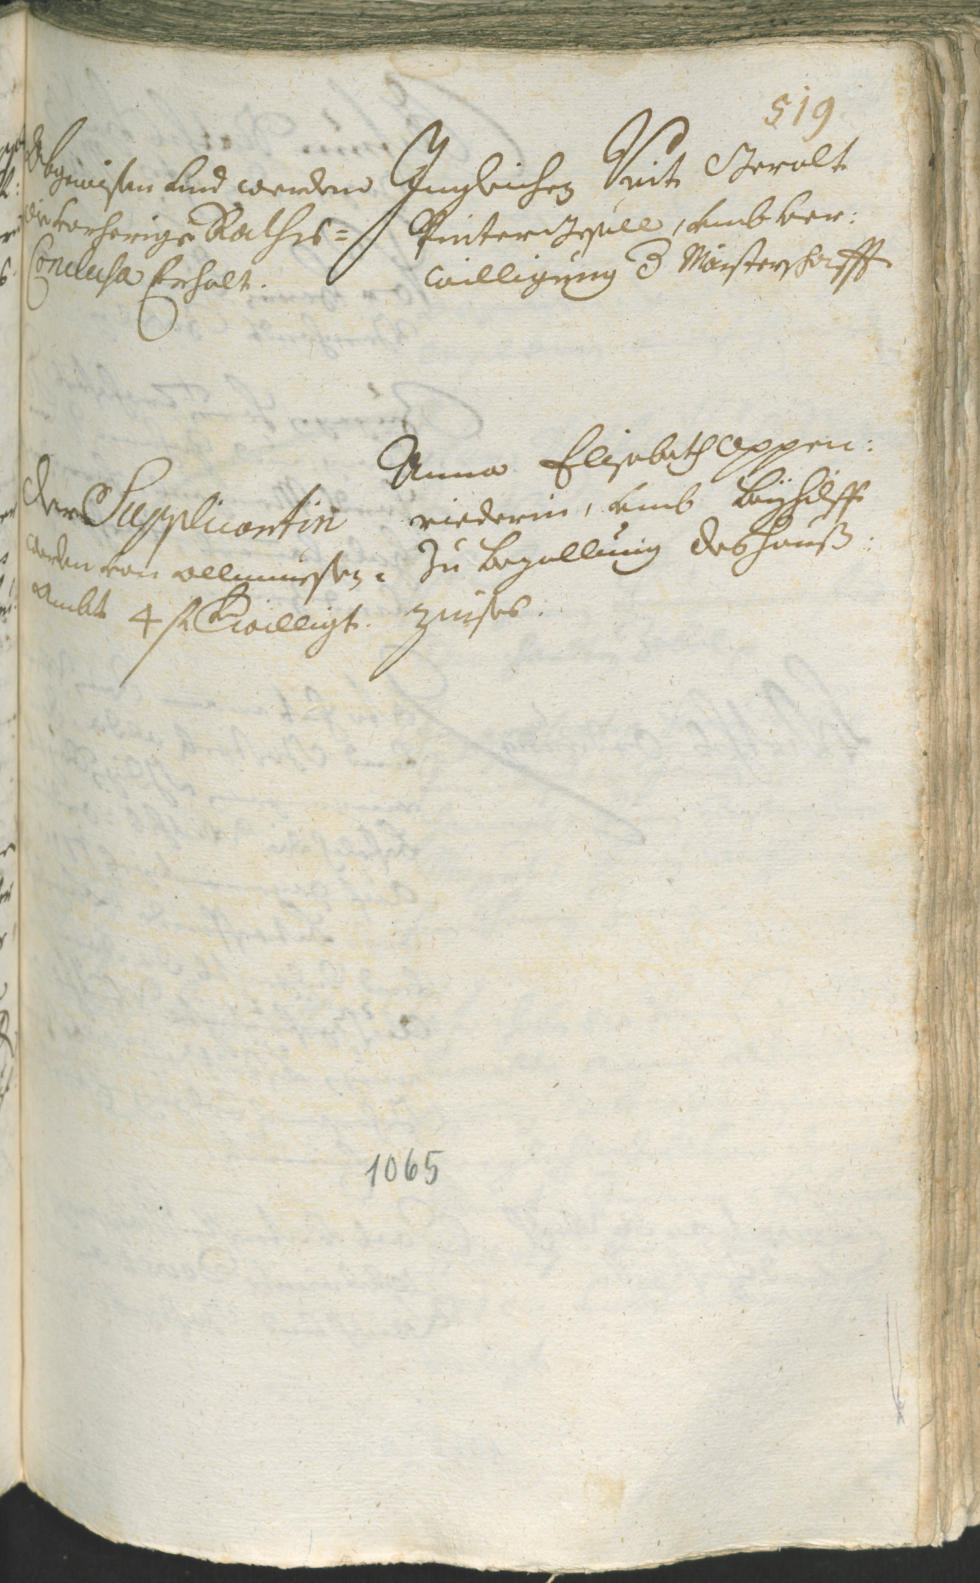 519
Abgewißen und werden
die vorherige Raths=
Conclusa Erholt.
Ingleichen Veit Gerolt
Pintergsöll, umb ver:
willigung d Maisterschafft
Der Supplicantin
werden von allmueßen=
Ambt 4 fl Bewilligt.
Anna Elisabeth Appen:
riederin, umb Beyhilff
Zu bezallung des hauß:
zinses.
1065